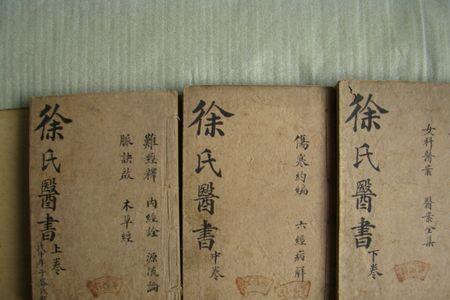 難經釋 內經詮 源流論
脈訣啟 本草經
徐氏醫書上卷
傷寒約編 六經病解
徐氏醫書中卷
女科醫案 醫案全集
徐氏醫書下卷